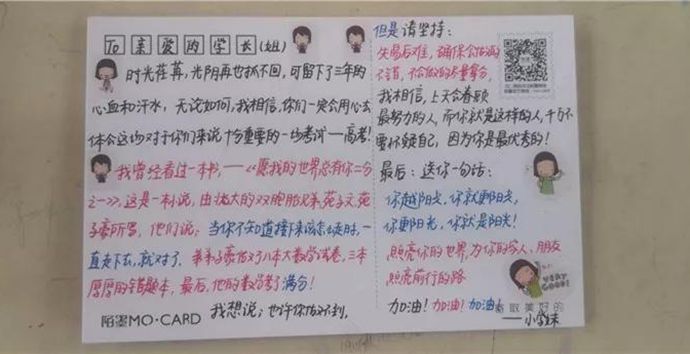 To 亲爱的学长(姐)
时光荏苒,光阴再也抓不回,可留下了三年的
心血和汗水,无论如何,我相信,你们一定会用心去
体会这场对于你们来说十分重要的一场考试——高考!
我曾经看过一本书,——《愿我的世界总有你二分
之一》,这是一本小说,由伟大的双胞胎兄弟,苑子文,苑
子豪所写,他们说:当你不知道接下来该怎么走时,一
直走下去,就对了。弟弟子豪做了八本大数学试卷,三本
厚厚的错题本,最后,他的数学考了满分!
我想说;也许你做不到,
陌墨MO·CARD
但是请坚持:
先易后难,确保会做的
不错,不会做的尽量拿分,
我相信,上天会眷顾
最努力的人,而你就是这样的人,千万不
要怀疑自己,因为你是最优秀的!
最后:送你一句话:
你越阳光,你就更阳光,
你更阳光,你就是阳光!
照亮你的世界,为你的家人、朋友
照亮前行的路
VERY GOOD!
加油!加油!加油!
取美好的
——小学妹